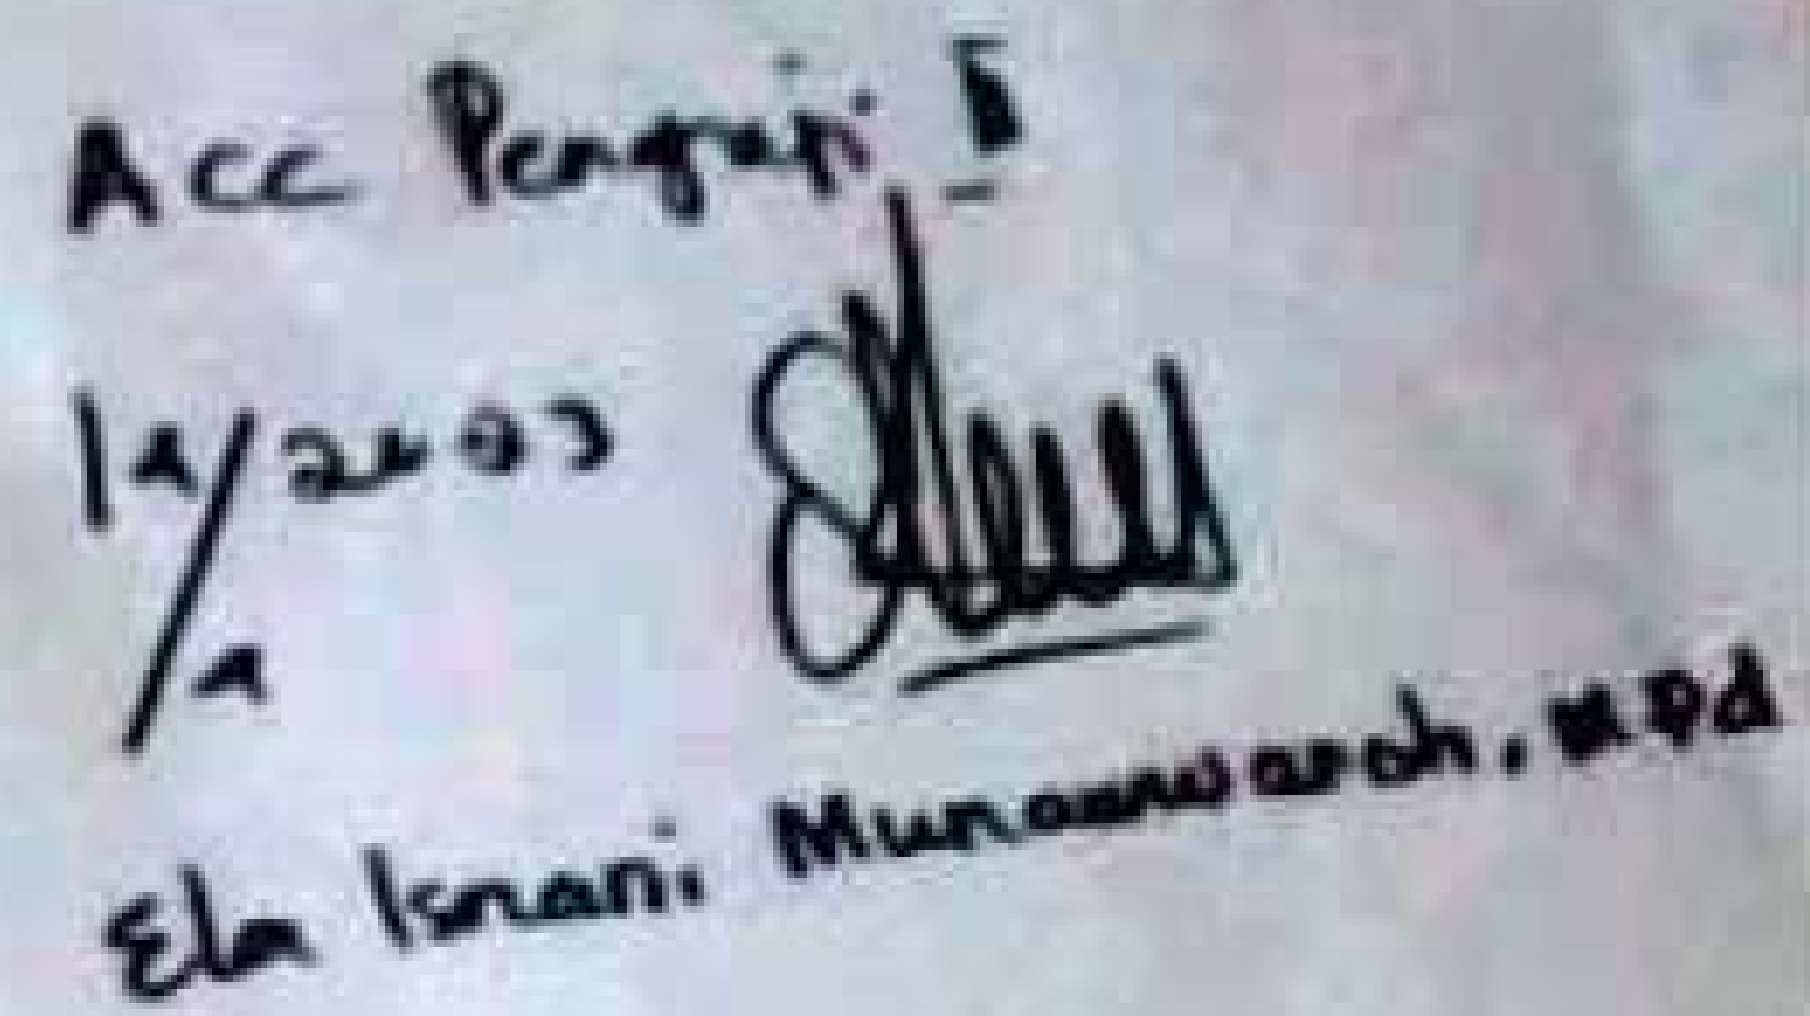 Acc Penguji II
Ela Isnani Munawwaroh, MPd